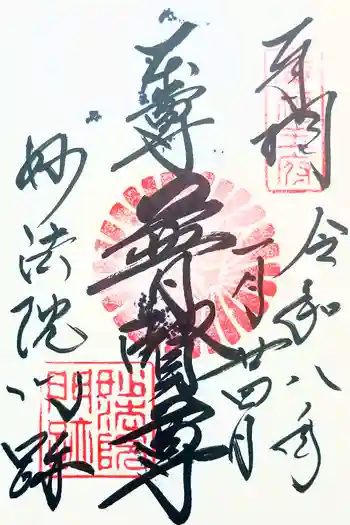 奉拝
令和八年
一月廿四日
本尊
普賢尊
妙法院門跡
妙法院
門跡